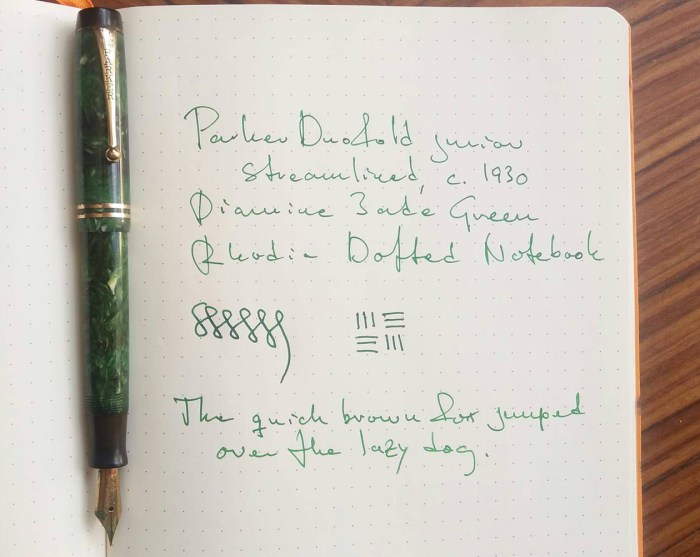 Parker Duofold junior
streamlined, c. 1930
Diamine Jade Green
Rhodia Dotted Notebook
The quick brown fox jumped
over the lazy dog.